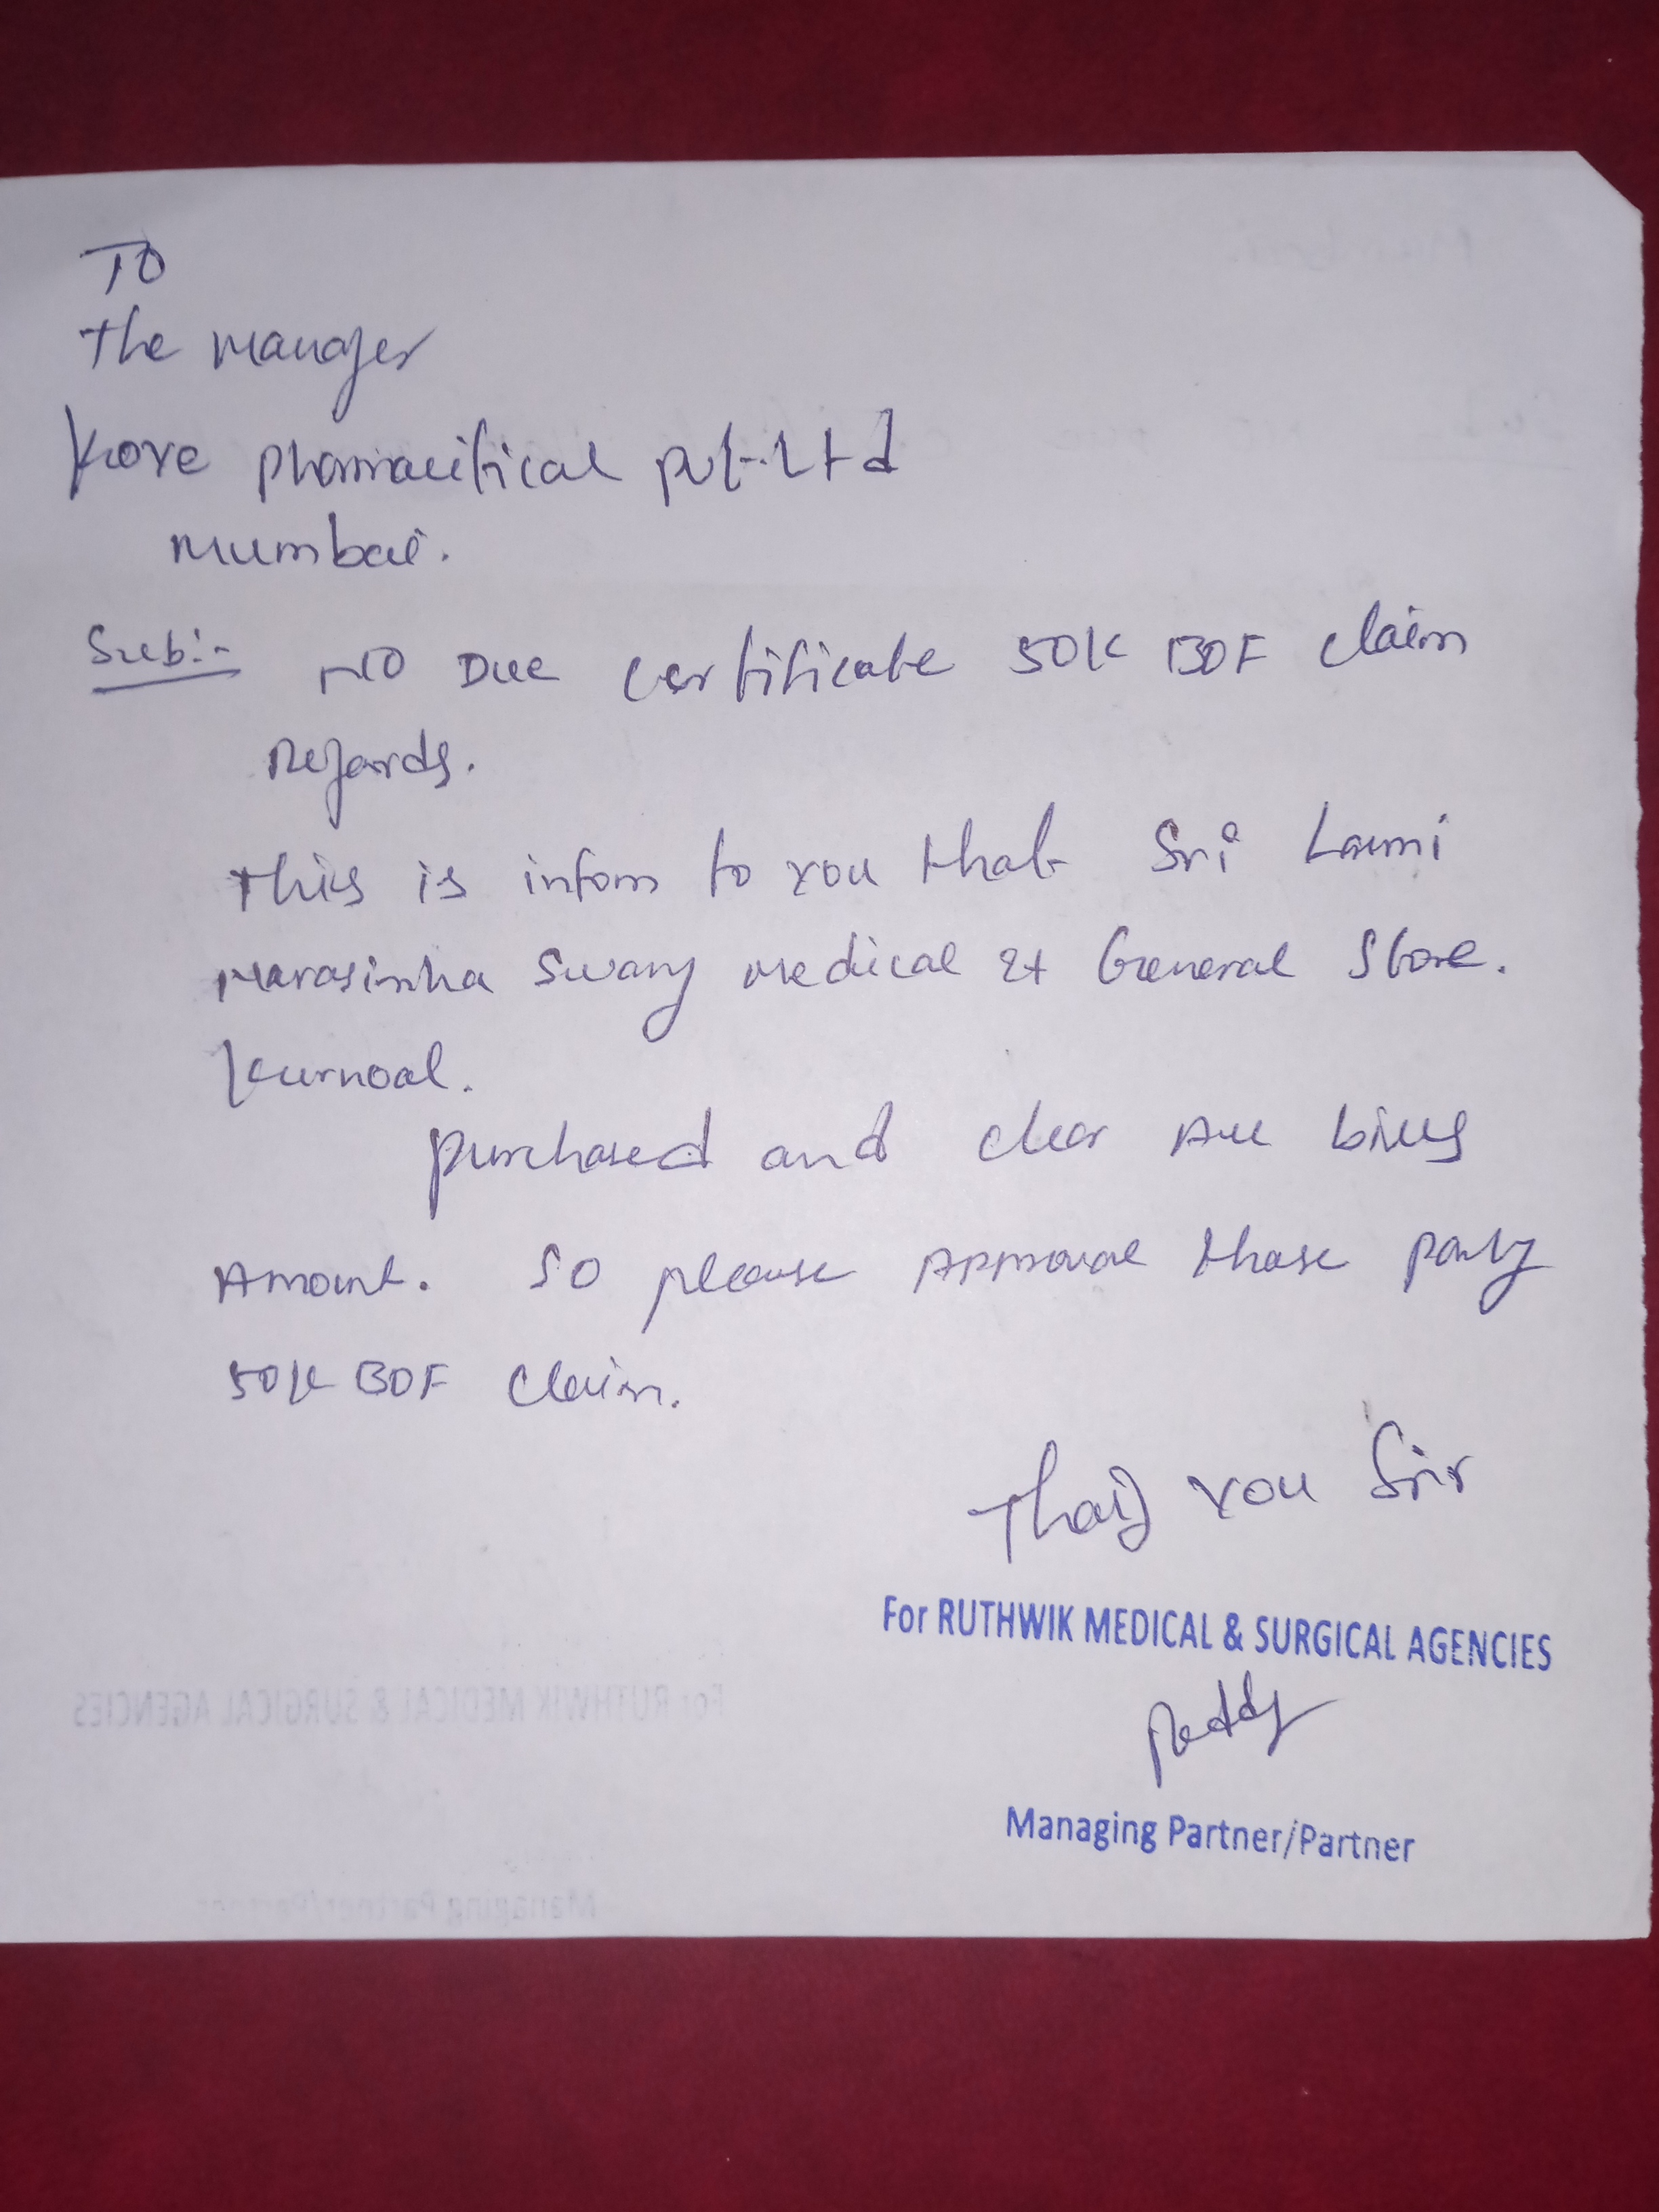 To
The manager
Kore pharmacitical pvt.Ltd
mumbai.
Sub:- NO Due certificate 50K BOF claim
Regards.
This is inform to you that Sri Laxmi
Narasimha Swamy medical & General Store.
Kurnool.
purchased and clear All bills
Amount. So please Approval those party
50K BOF claim.
Thank you Sir
For RUTHWIK MEDICAL & SURGICAL AGENCIES
Reddy
Managing Partner/Partner